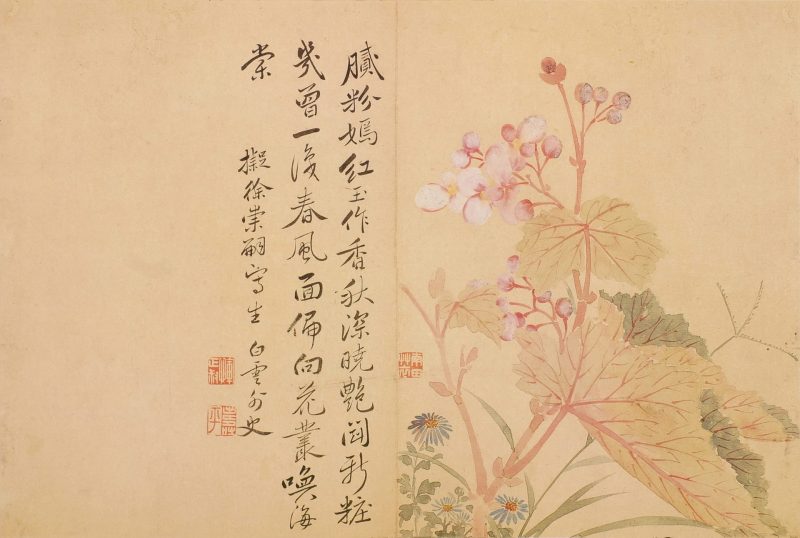 膩粉嫣紅玉作香秋深曉艷鬪新粧
幾曾一春風面偏向花叢喚海
棠
擬徐崇嗣寫生 白雲外史
壽平